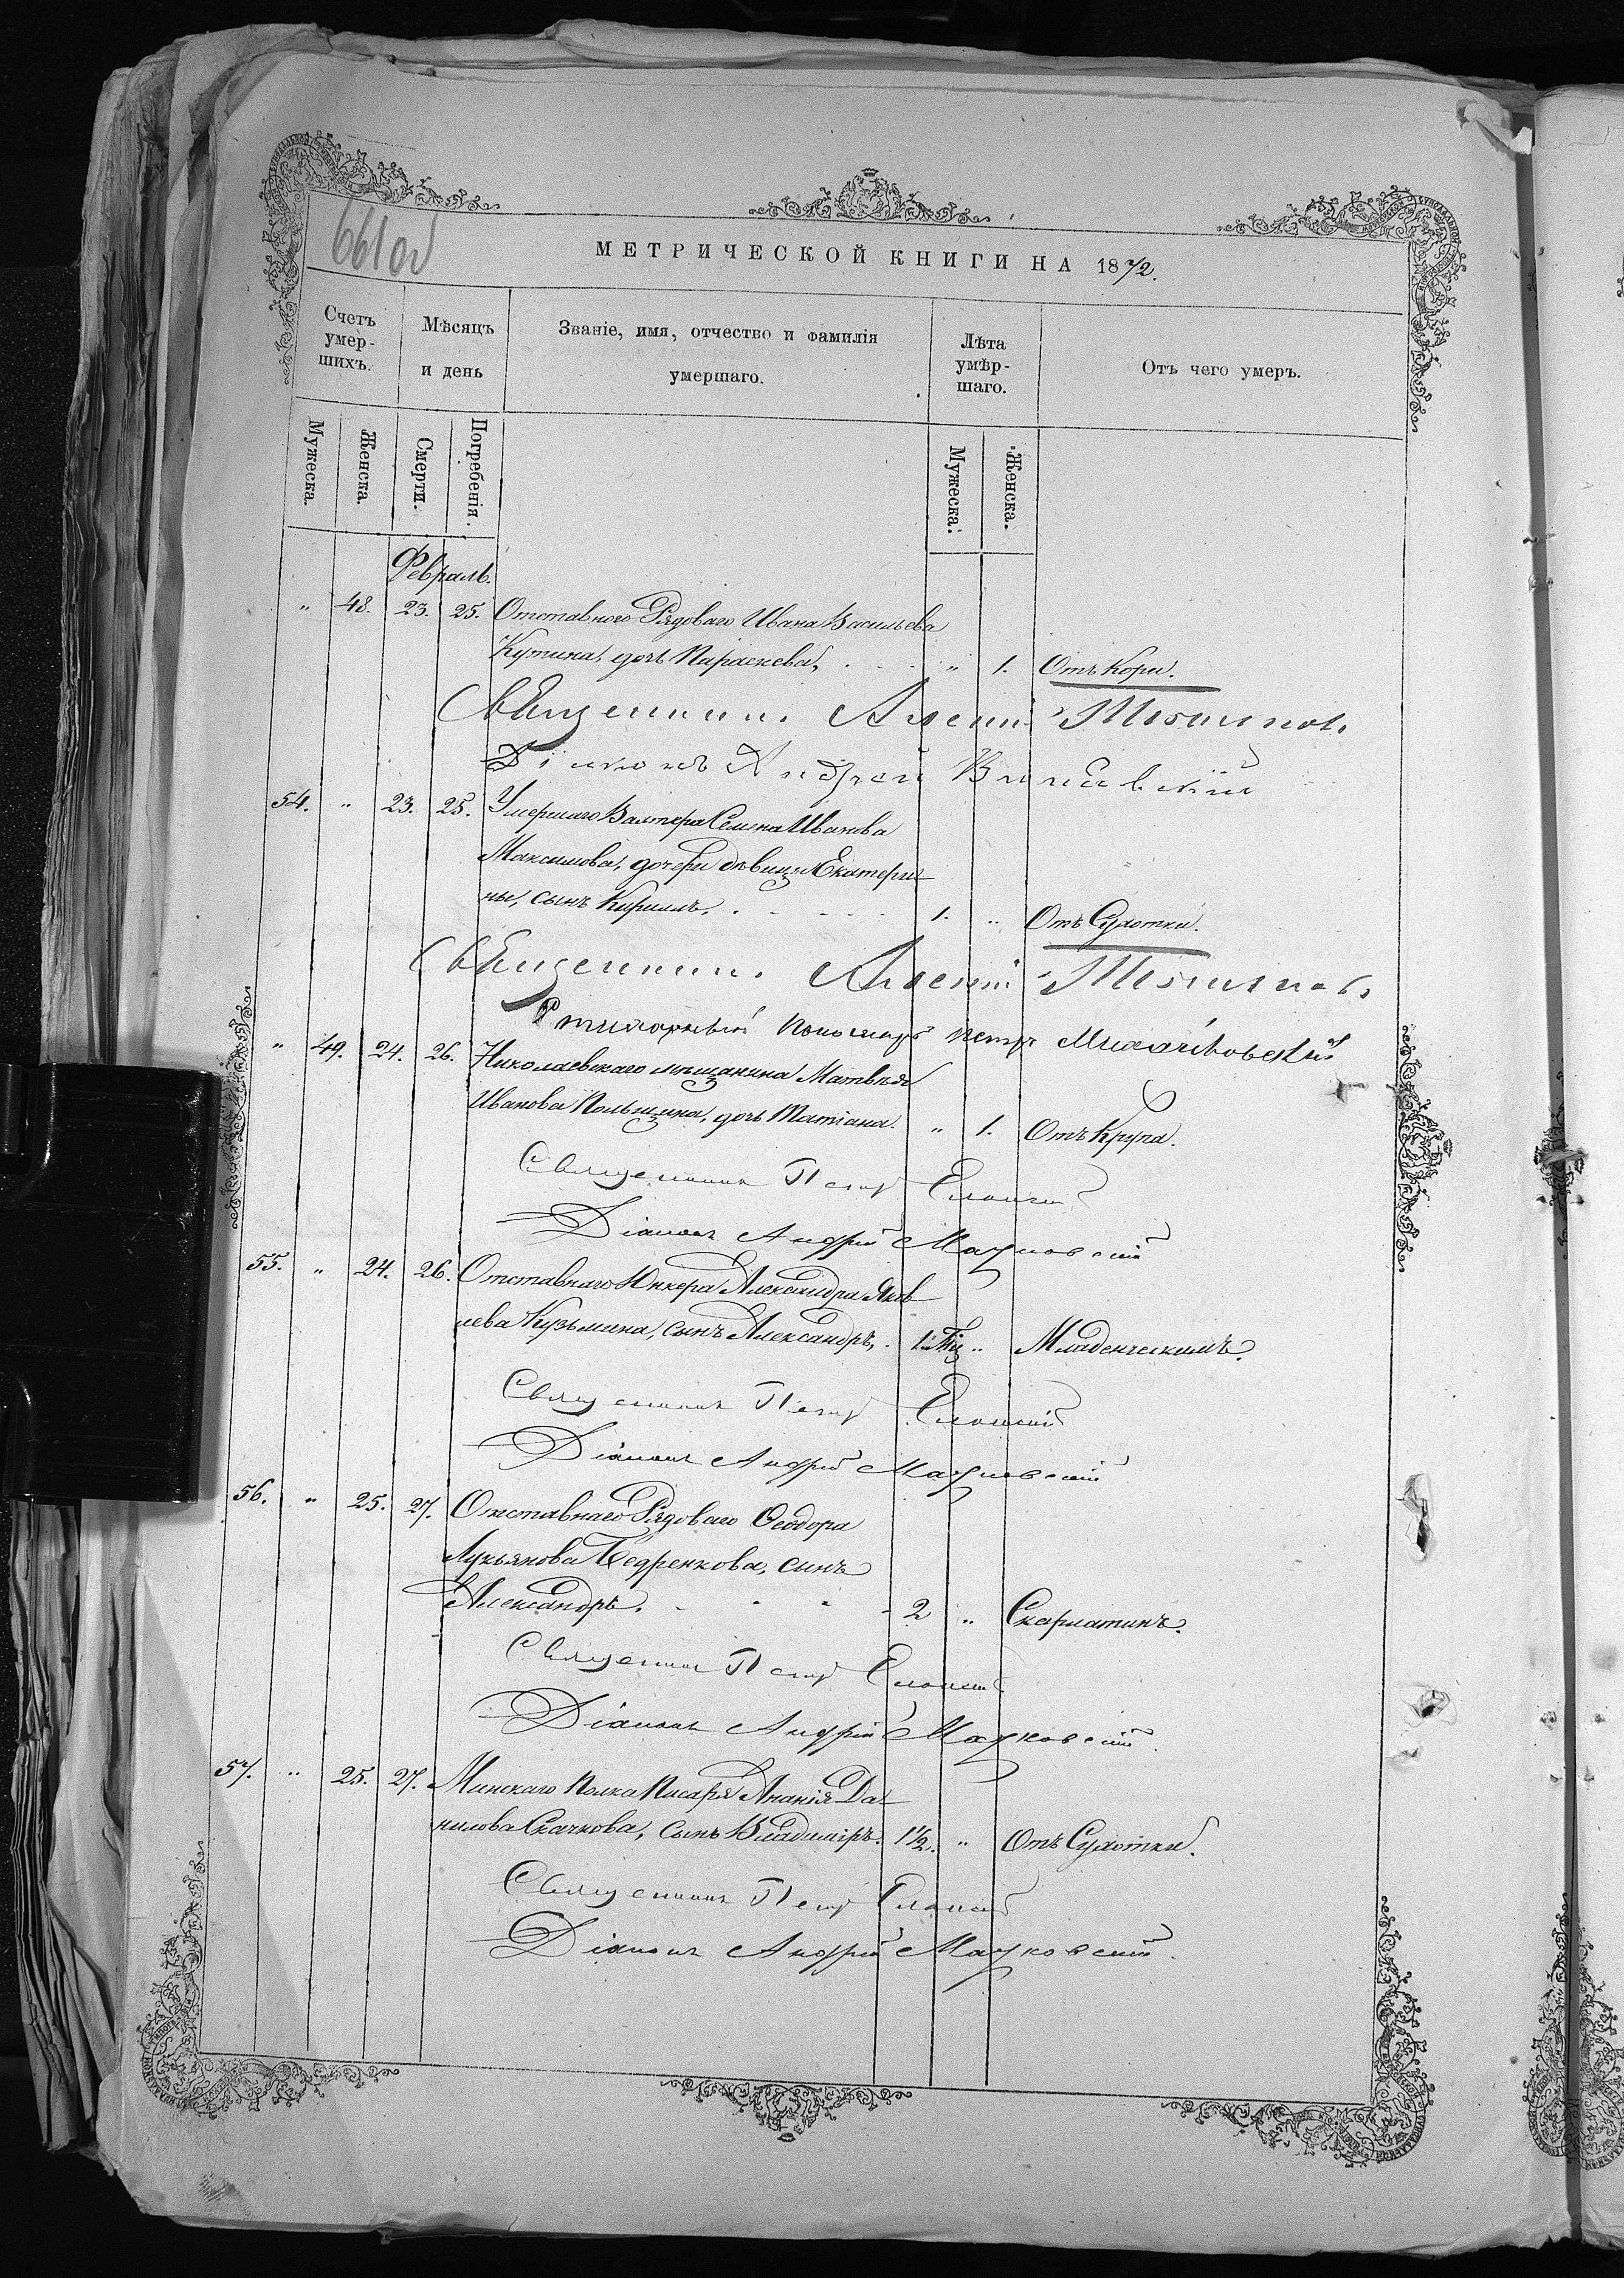 661об
МЕТРИЧЕСКОЙ КНИГИ НА 1872.
Счетъ умер-шихъ.
Мѣсяцъ и день
Званіе, имя, отчество и фамилія умершаго.
Лѣта умѣр-шаго.
Отъ чего умеръ.
Мужеска.
Женска.
Смерти.
Погребенія.
Мужеска.
Женска.
Февраль.
„ 48. 23. 25. Отставного Рядоваго Ивана Васильева
Кутина, дочь Параскева, „ 1. Отъ Кори.
Священникъ
Діаконъ Андрей
54. „ 23. 25. Умершаго Вахтера Семена Иванова
Максимова, дочери дѣвицы Екатери-
ны, сынъ Кириллъ. 1. „ Отъ Сухотки.
Священникъ
Пономарь Петръ Михайловскій
„ 49. 24. 26. Николаевскаго мѣщанина Матвѣя
Иванова Польщина, дочь Татіана. „ 1. Отъ Крупа.
Священникъ Петръ Еланскій
Діаконъ Андрей Мацковскій
55. „ 24. 26. Отставнаго Юнкера Александра Яков
лева Кузьмина, сынъ Александръ, 1. „ Младенческимъ.
Священникъ Петръ Еланскій
Діаконъ Андрей Мацковскій
56. „ 25. 27. Отставнаго Рядоваго Ѳеодора
Лукьянова Бедренкова, сынъ
Александръ. 2 „ Скарлатинъ.
Священникъ Петръ Еланскій
Діаконъ Андрей Мацковскій.
57. „ 25. 27. Минскаго Полка Писаря Ананія Да-
нилова Скачкова, сынъ Владиміръ. 1½. „ Отъ Сухотки.
Священникъ Петръ Еланскій
Діаконъ Андрей Мацковскій.